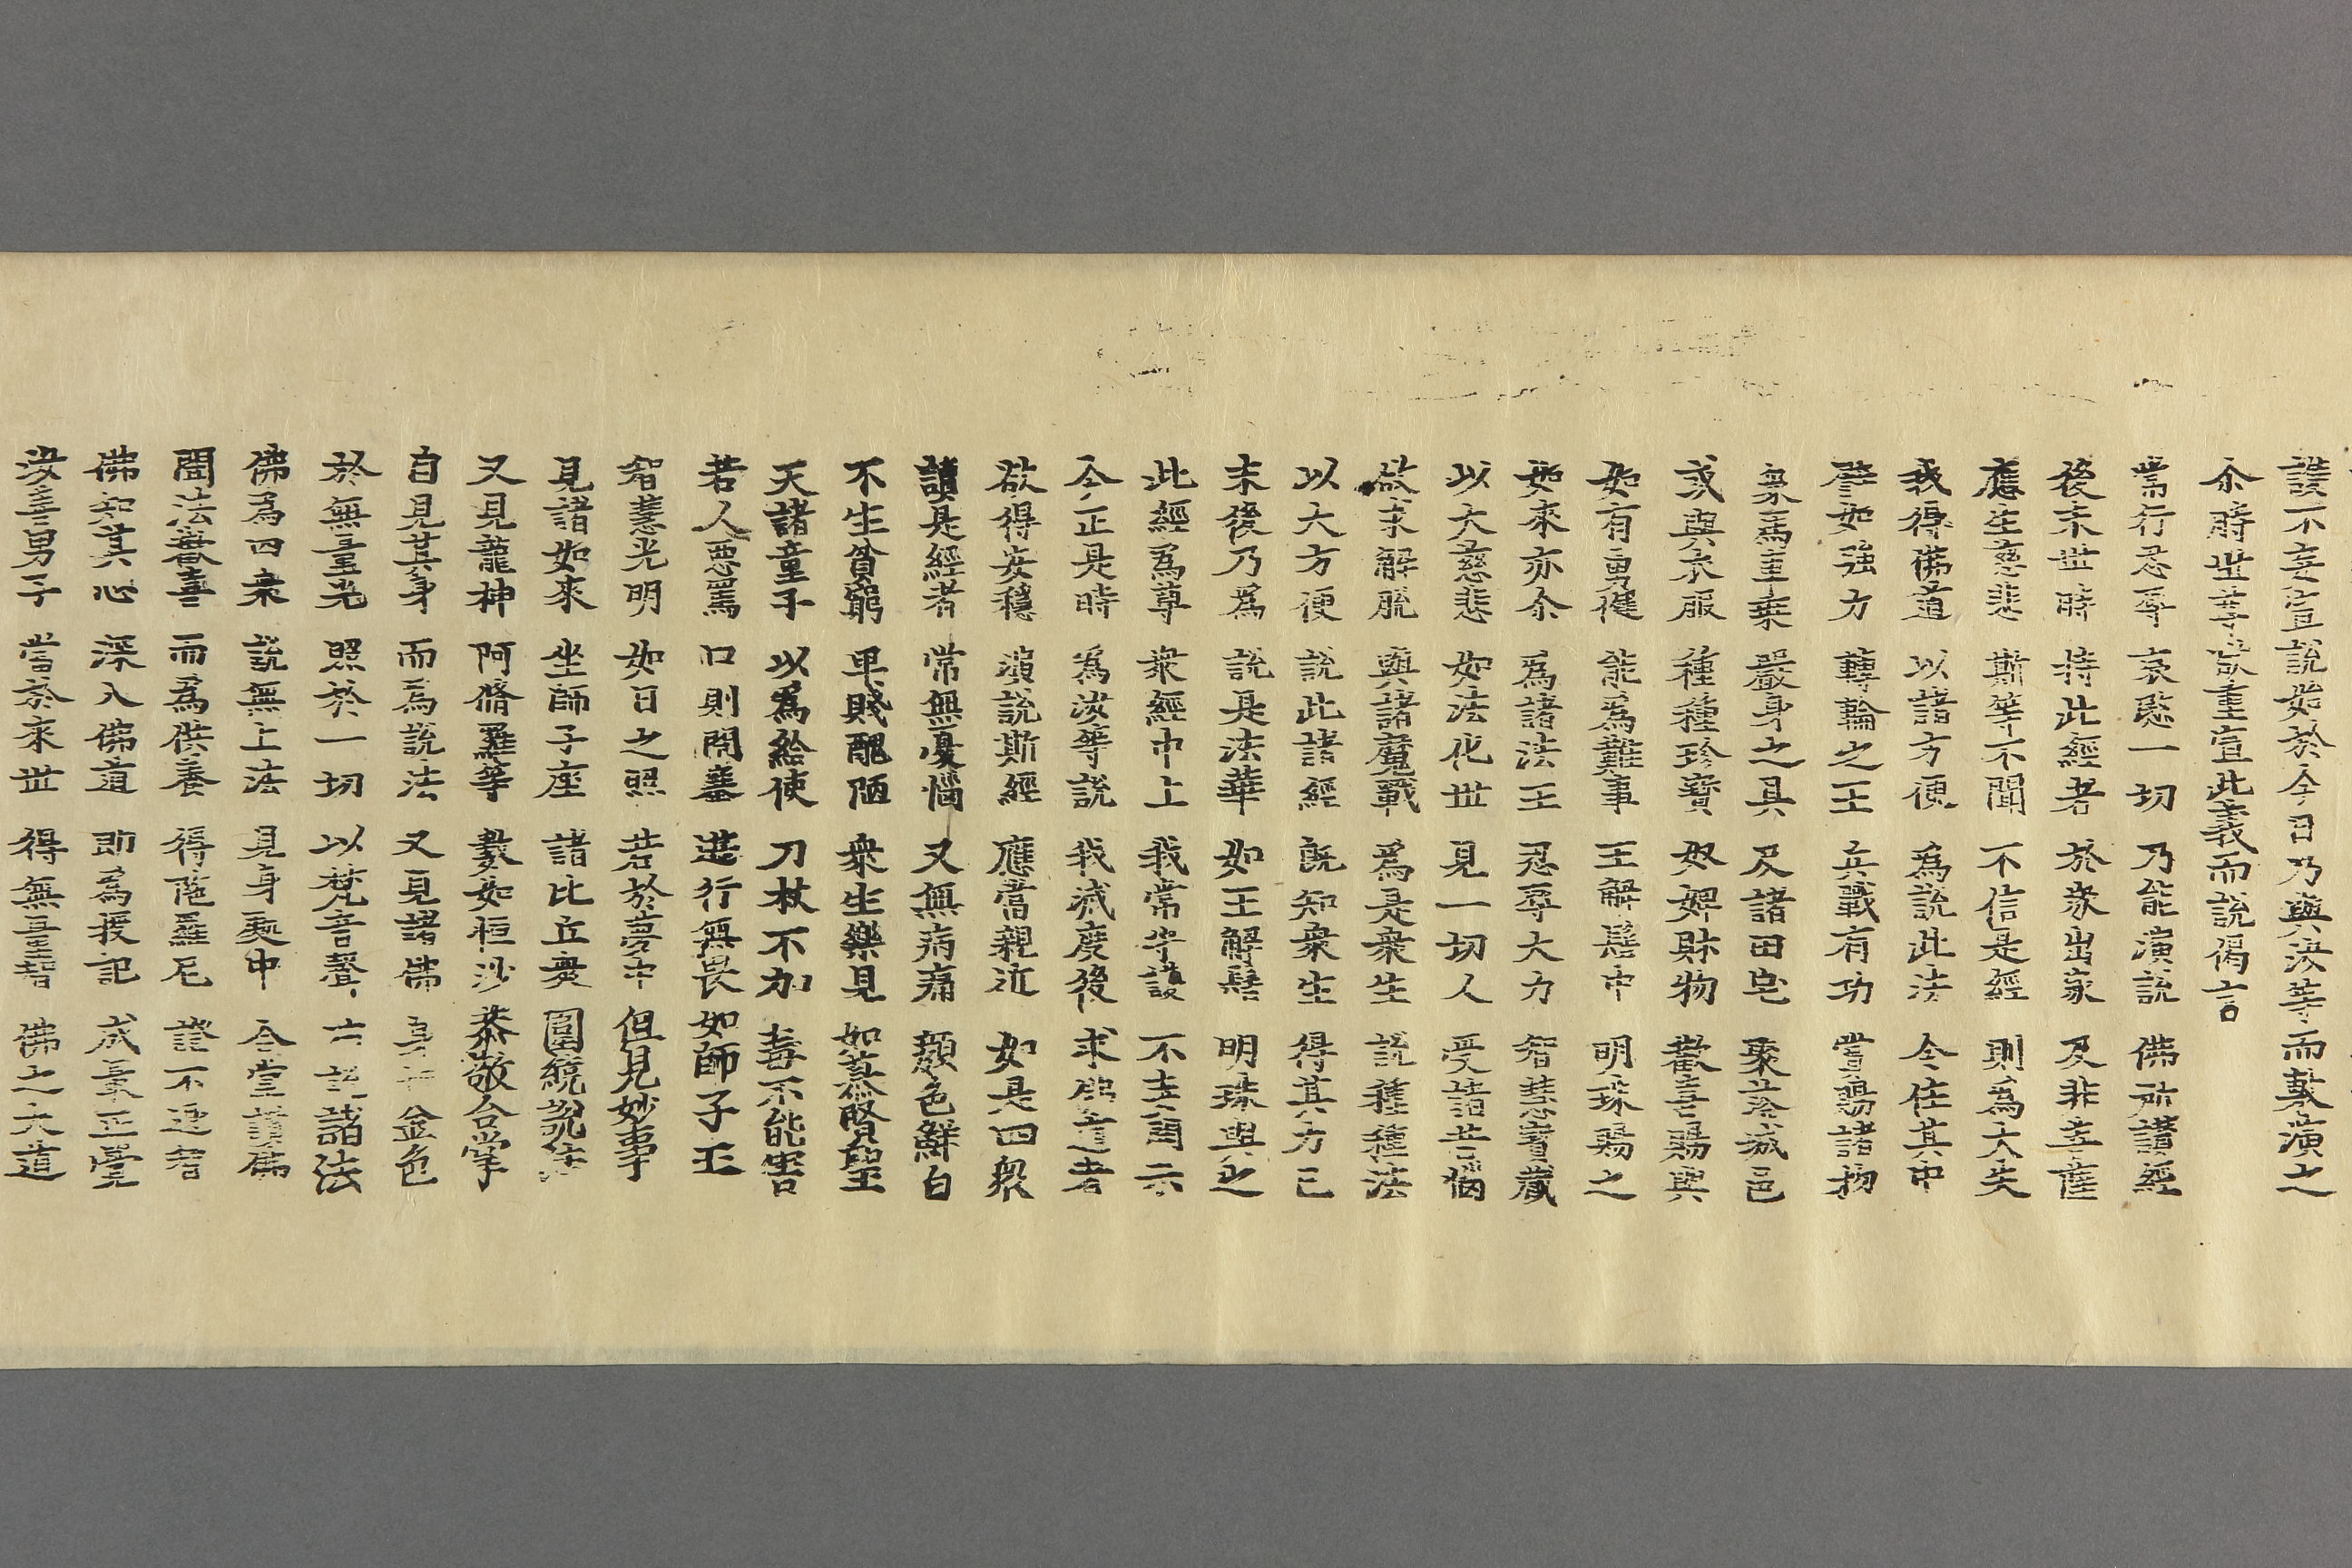 護不妄宣說始於今日乃與汝等而敷演之
尒時世尊欲重宣此義而說偈言
常行忍辱 哀愍一切 乃能演說 佛所讃經
後末世時 持此經者 於家出家 及非菩薩
應生慈悲 斯等不聞 不信是經 則爲大失
我得佛道 以諸方便 爲說此法 令住其中
譬如強力 轉輪之王 兵戰有功 賞賜諸物
象馬車乘 嚴身之具 及諸田宅 聚落城邑
或與衣服 種種珍寶 奴婢財物 歡喜賜與
如有勇健 能爲難事 王解髻中 明珠賜之
如來亦尒 爲諸法王 忍辱大力 智慧寶藏
以大慈悲 如法化世 見一切人 受諸苦惱
欲求解脫 與諸魔戰 爲是衆生 說種種法
以大方便 說此諸經 旣知衆生 得其力已
末後乃爲 說是法華 如王解髻 明珠與之
此經爲尊 衆經中上 我常守護 不妄開示
今正是時 爲汝等說 我滅度後 求佛道者
欲得安穩 演說斯經 應當親近 如是四衆
讀是經者 常無憂惱 又無病痛 顏色鮮白
不生貧窮 卑賤醜陋 衆生樂見 如慕賢聖
天諸童子 以爲給使 刀杖不加 毒不能害
若人惡罵 口則閉塞 遊行無畏 如師子王
智慧光明 如日之照 若於夢中 但見妙事
見諸如來 坐師子座 諸比丘衆 圍繞說法
又見龍神 阿脩羅等 數如恒沙 恭敬合掌
自見其身 而爲說法 又見諸佛 身 金色
於無量光 照於一切 以梵音聲 諸法
佛爲四衆 說無上法 見身處中 合掌讃佛
聞法歡喜 而爲供養 得陁羅尼 證不退智
佛知其心 深入佛道 即爲授記 成冣正覺
汝善男子 當於來世 得無量智 佛之大道